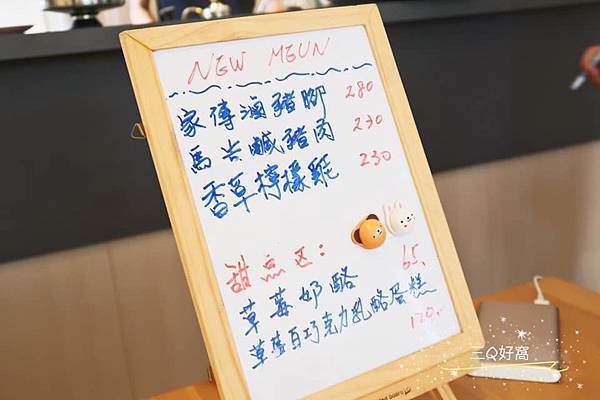 NEW MEUN
家傳滷豬腳 280
馬告鹹豬肉 230
香草檸檬雞 230
甜点区：
草莓奶酪 65.
草莓白巧克力乳酪蛋糕
120.-
三Q好窩